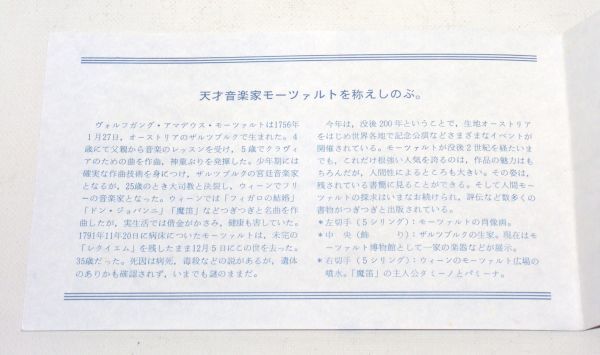 天才音楽家モーツァルトを称えしのぶ。
ヴォルフガング・アマデウス・モーツァルトは1756年
1月27日，オーストリアのザルツブルクで生まれた。4
歳にて父親から音楽のレッスンを受け，5歳でクラヴィ
アのための曲を作曲，神童ぶりを発揮した。少年期には
確実な作曲技術を身につけ，ザルツブルクの宮廷音楽家
となるが，25歳のとき大司教と決裂し，ウィーンでフリ
ーの音楽家となった。ウィーンでは「フィガロの結婚」
「ドン・ジョバンニ」「魔笛」などつぎつぎと名曲を作
曲したが，実生活では借金がかさみ，健康も害していた。
1791年11月20日に病床についたモーツァルトは，未完の
「レクイエム」を残したまま12月5日にこの世を去った。
35歳だった。死因は病死，毒殺などの説があるが，遺体
のありかも確認されず，いまでも謎のままだ。
今年は，没後200年ということで，生地オーストリア
をはじめ世界各地で記念公演などさまざまなイベントが
開催されている。モーツァルトが没後2世紀を経たいま
でも，これだけ根強い人気を誇るのは，作品の魅力はも
ちろんだが，人間性によるところも大きい。その姿は，
残されている書簡に見ることができる。そして人間モー
ツァルトの探求はいまなお続けられ，評伝など数多くの
書物がつぎつぎと出版されている。
*左切手（5シリング）：モーツァルトの肖像画。
*中　央（飾　　り）：ザルツブルクの生家。現在はモ
ーツァルト博物館として一家の楽器などが展示。
*右切手（5シリング）：ウィーンのモーツァルト広場の
噴水。「魔笛」の主人公タミーノとパミーナ。